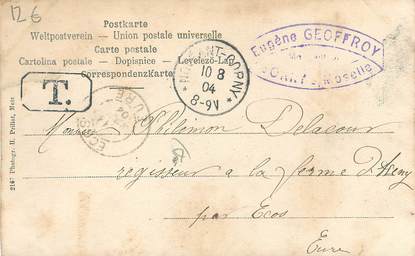 126
Postkarte
Weltpostverein - Union postale universelle
Carte postale
Cartolina postale - Dopisnice - Levelező-Lap
Correspondenzkarte
NOVÉANT-CORNY
10 8
04
8-9V
Eugène GEOFFROY
CORNY s/Moselle
T.
EURE
Monsieur Philémon Delacour
régisseur a la ferme d'
par Ecos
Eure
2167 Photogr. H. Peillet, Metz